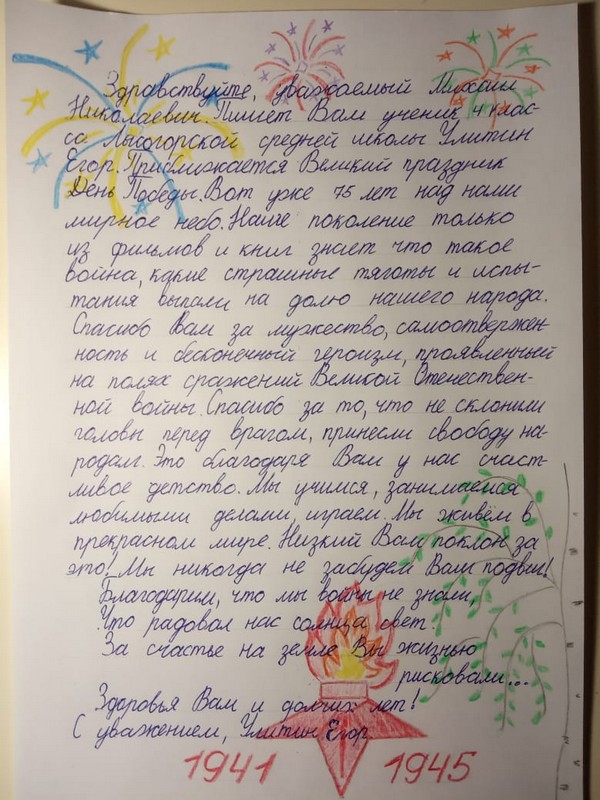 Здравствуйте, уважаемый Михаил
Николаевич. Пишет Вам ученик 4 клас-
са Лысогорской средней школы Улитин
Егор. Приближается Великий праздник
День Победы. Вот уже 75 лет над нами
мирное небо. Наше поколение только
из фильмов и книг знает что такое
война, какие страшные тяготы и испы-
тания выпали на долю нашего народа.
Спасибо Вам за мужество, самоотвержен
ность и бесконечный героизм, проявленный
на полях сражений Великой Отечествен-
ной войны. Спасибо за то, что не склонили
головы перед врагом, принесли свободу на-
родам. Это благодаря Вам у нас счаст-
ливое детство. Мы учимся, занимаемся
любимыми делами, играем. Мы живём в
прекрасном мире. Низкий Вам поклон за
это! Мы никогда не забудем Вам подвиг!
Благодарим, что мы войны не знали,
Что радовал нас солнца свет.
За счастье на земле Вы жизнью
рисковали...
Здоровья Вам и долгих лет!
С уважением, Улитин Егор
1941 1945